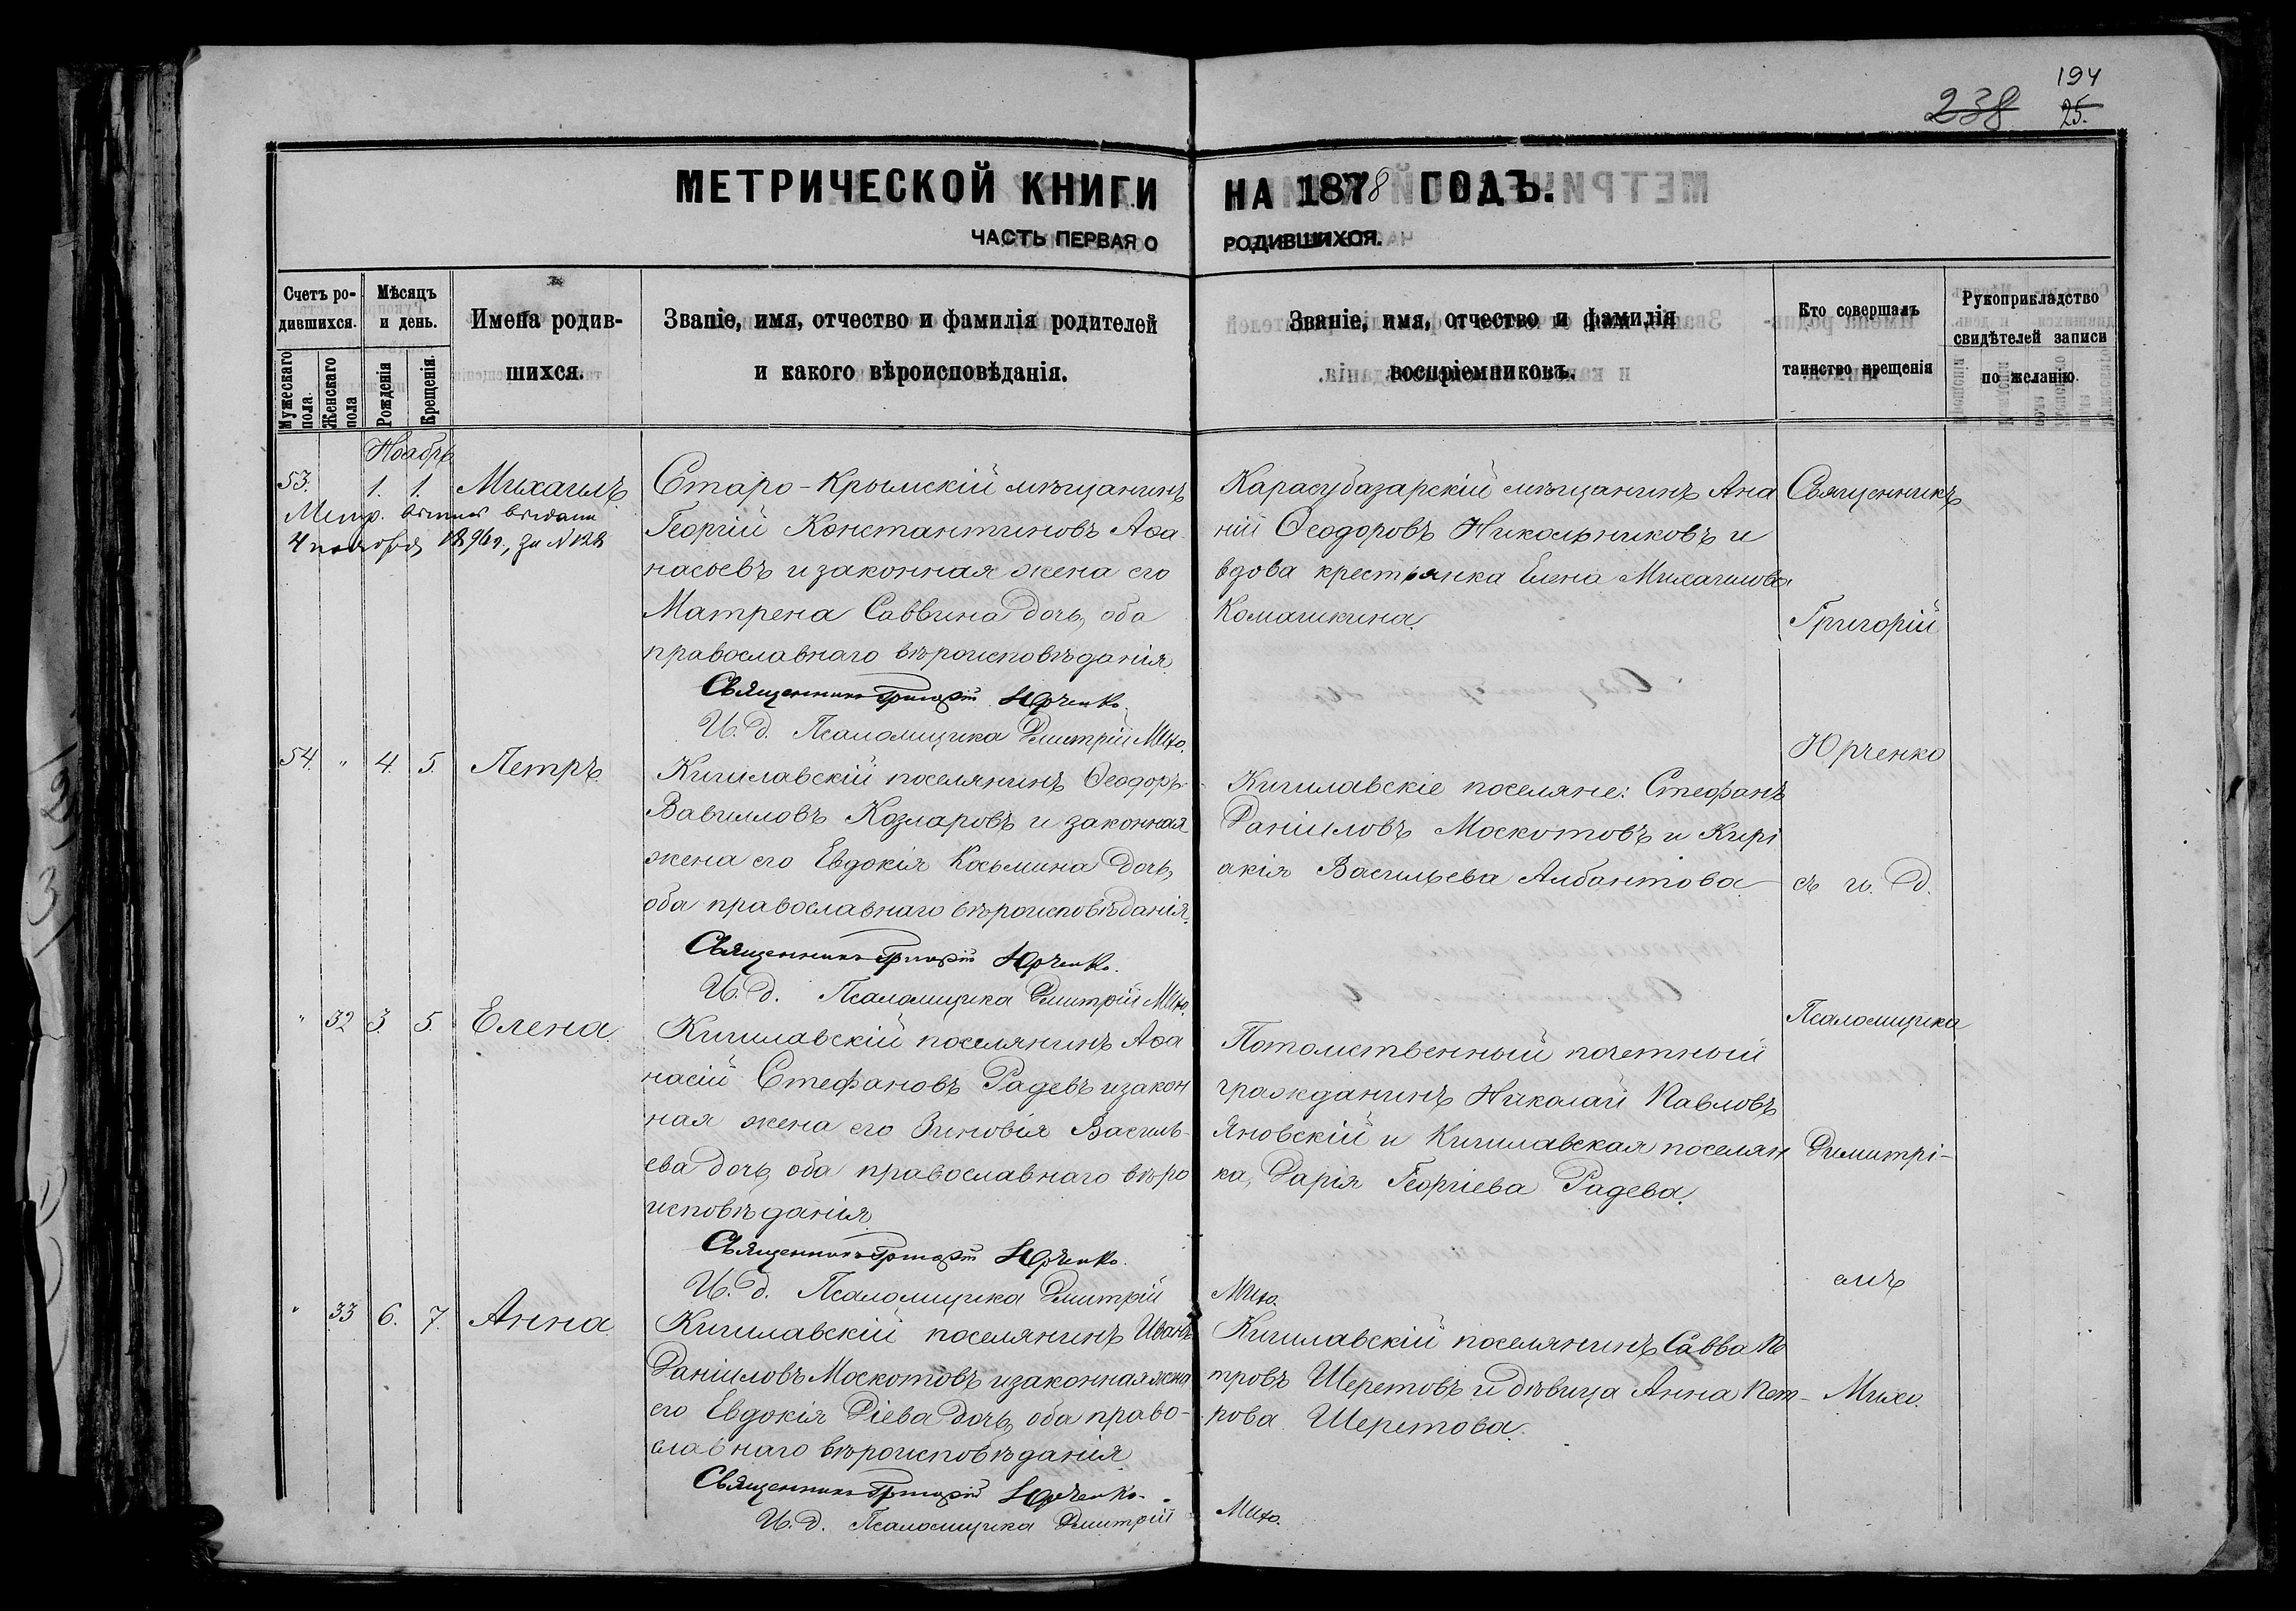 194
238 25.
МЕТРИЧЕСКОЙ КНИГИ НА 1878 ГОДЪ.
ЧАСТЬ ПЕРВАЯ О РОДИВШИХСЯ.
Счетъ ро-
дившихся.
Мужескаго пола.
Женскаго пола
Мѣсяцъ
и день.
Рожденія
Крещенія.
Имена родив-
шихся.
Званіе, имя, отчество и фамилія родителей
и какого вѣроисповѣданія.
Званіе, имя, отчество и фамилія
воспріемниковъ.
Кто совершалъ
таинство крещенія
Рукоприкладство
свидѣтелей записи
по желанію.
Ноябрь
53. 1. 1. Михаилъ
Метр. выпись выдана
4 1896 г., за № 128
Старо-Крымскій мѣщанинъ
Георгій Константиновъ Аѳа
насьевъ и законная жена его
Матрена Саввина дочь, оба
православнаго вѣроисповѣданія.
Священникъ Григорій Юрченко.
И. д. Псаломщика Дмитрій Михо.
Карасубазарскій мѣщанинъ Ана
ній Ѳеодоровъ Никольниковъ и
вдова крестьянка Елена Михаилова
Комашкина.
54. " 4. 5. Петръ.
Кишлавскій поселянинъ Ѳеодоръ
Вавиловъ Козларовъ и законная
жена его Евдокія Косьмина дочь,
оба православнаго вѣроисповѣданія.
Священникъ Григорій Юрченко.
И. д. Псаломщика Дмитрій Михо.
Кишлавскіе поселяне: Стефанъ
Даніиловъ Москотовъ и Кирі
акія Васильева Албантова
" 32 3. 5. Елена.
Кишлавскій поселянинъ Аѳа
насій Стефановъ Радевъ и закон
ная жена его Зиновія Василь-
ева дочь, оба православнаго вѣро
исповѣданія.
Священникъ Григорій Юрченко.
И. д. Псаломщика Дмитрій Михо.
Потомственный почетный
гражданинъ Николай Павловъ
Яновскій и Кишлавская поселян
ка, Дарія Георгіева Радева.
" 33 6. 7. Анна
Кишлавскій поселянинъ Иванъ
Даніиловъ Москотовъ и законная жена
его Евдокія Діева дочь, оба право-
славнаго вѣроисповѣданія
Священникъ Григорій Юрченко.
И. д. Псаломщика Дмитрій Михо.
Кишлавскій поселянинъ Савва Пе
тровъ Шеретовъ и дѣвица Анна Пет-
рова Шеретова.
Священникъ
Григорій
Юрченко
съ и. д.
Псаломщика
Димитрі-
емъ
Михо.